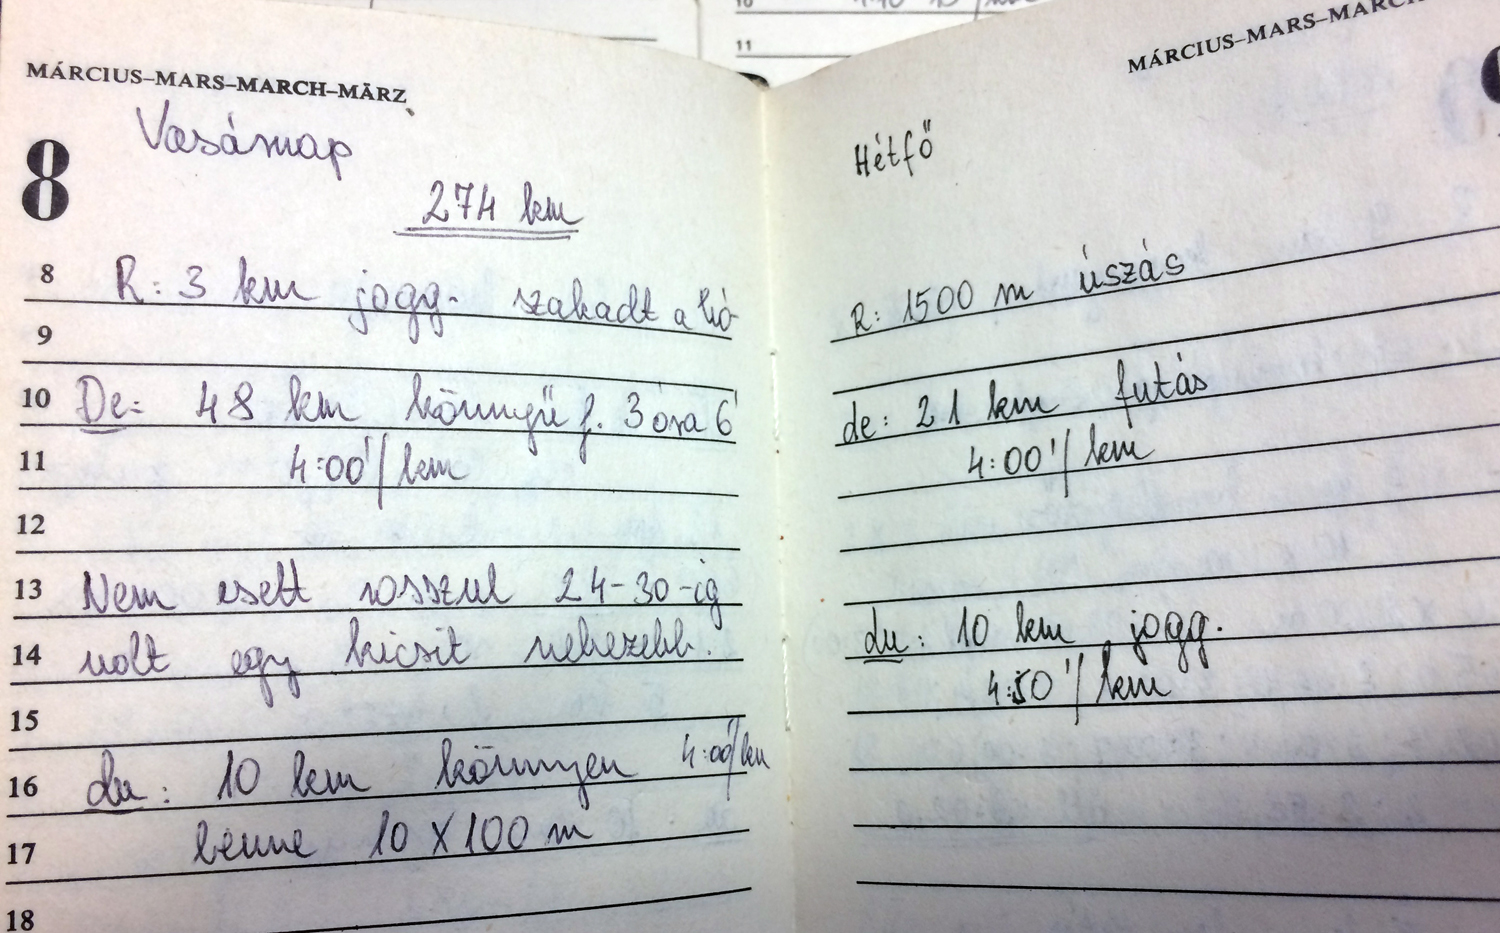 MÁRCIUS–MARS–MARCH–MÄRZ
8
Vasárnap
274 km
8 R: 3 km jogg. szakadt a hó
9
10 De: 48 km könnyű f. 3 óra 6'
11 4:00'/km
12
13 Nem esett rosszul 24-30-ig
14 volt egy kicsit nehezebb.
15
16 du: 10 km könnyen 4:00'/km
17 benne 10 X 100 m
18
MÁRCIUS–MARS–MARCH
Hétfő
R: 1500 m úszás
de: 21 km futás
4:00'/km
du: 10 km jogg.
4:50'/km